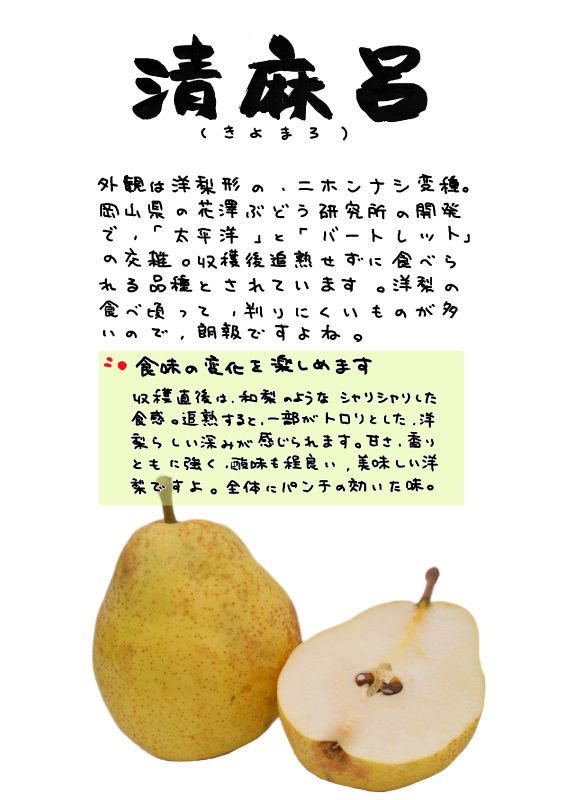 清麻呂
(きよまろ)
外観は洋梨形の、ニホンナシ変種。
岡山県の花澤ぶどう研究所の開発
で、「太平洋」と「バートレット」
の交雑。収穫後追熟せずに食べら
れる品種とされています。洋梨の
食べ頃って、判りにくいものが多
いので、朗報ですよね。
食味の変化を楽しめます
収穫直後は、和梨のような シャリシャリした
食感。追熟すると、一部がトロリとした、洋
梨らしい深みが感じられます。甘さ、香り
ともに強く、酸味も程良い、美味しい洋
梨ですよ。全体にパンチの効いた味。